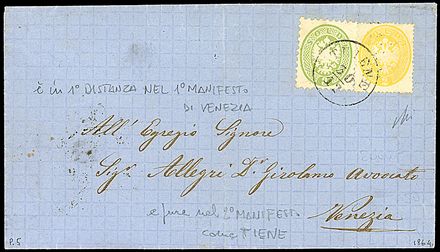 è in 1° DISTANZA NEL 1° MANIFESTO
DI VENEZIA
All' Egregio Signore
Sigr Allegri Dr Girolamo Avvocato
e pure nel 2° MANIFESTO
come TIENE
Venezia
P.5
1864